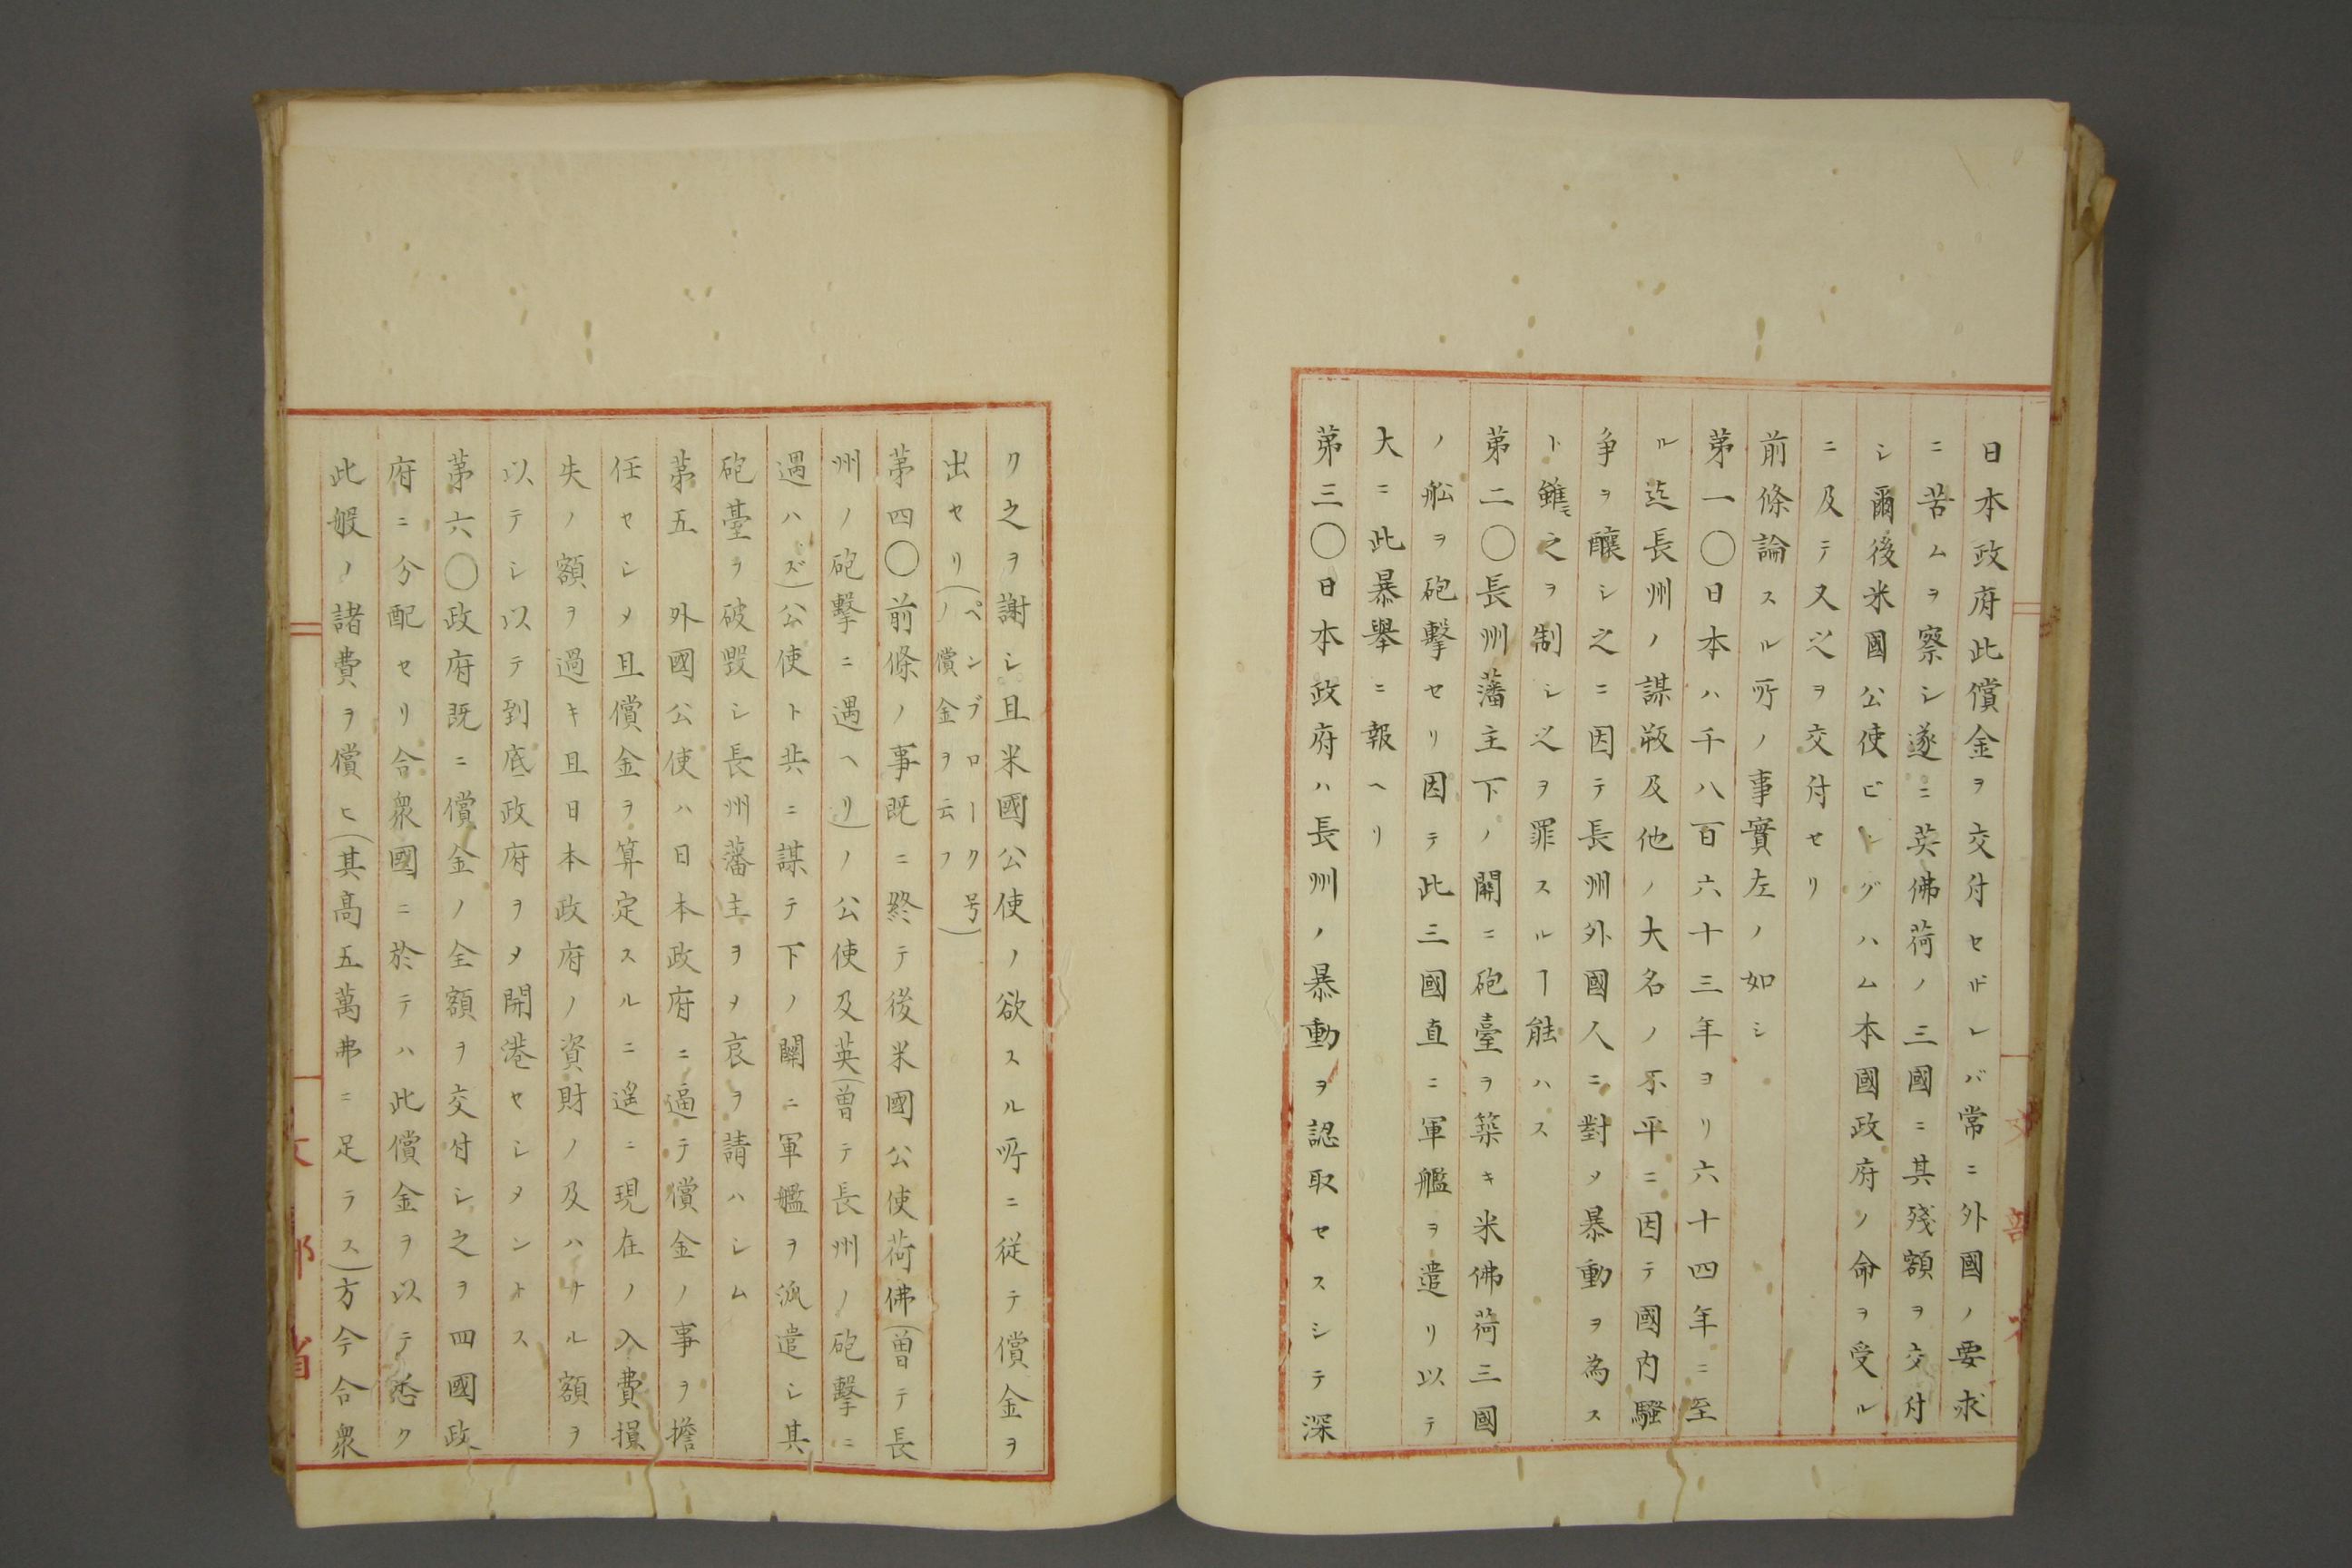 日本政府此償金ヲ交付セザレバ常ニ外國ノ要求
ニ苦ムヲ察シ遂ニ英佛荷ノ三國ニ其殘額ヲ交付
シ爾後米國公使ビングハム本國政府ノ命ヲ受ル
ニ及テ又之ヲ交付セリ
前條論スル所ノ事實左ノ如シ
第一〇日本ハ千八百六十三年ヨリ六十四年ニ至
ル迄長州ノ謀叛及他ノ大名ノ不平ニ因テ國内騷
争ヲ釀シ之ニ因テ長州外國人ニ對メ暴動ヲ為ス
ト雖モ之ヲ制シ之ヲ罪スルヿ能ハス
第二〇長州藩主下ノ關ニ砲臺ヲ築キ米佛荷三國
ノ舩ヲ砲擊セリ因テ此三國直ニ軍艦ヲ遣リ以テ
大ニ此暴舉ニ報ヘリ
第三〇日本政府ハ長州ノ暴動ヲ認取セスシテ深
ク之ヲ謝シ且米國公使ノ欲スル所ニ従テ償金ヲ
出セリ(ペンブローク号ノ償金ヲ云フ)
第四〇前條ノ事既ニ終テ後米國公使荷佛(曽テ長
州ノ砲擊ニ遇ヘリ)ノ公使及英(曽テ長州ノ砲擊ニ
遇ハズ)公使ト共ニ謀テ下ノ關ニ軍艦ヲ派遣シ其
砲臺ヲ破毀シ長州藩主ヲメ哀ヲ請ハシム
第五 外國公使ハ日本政府ニ逼テ償金ノ事ヲ擔
任セシメ且償金ヲ算定スルニ遥ニ現在ノ入費損
失ノ額ヲ過キ且日本政府ノ資財ノ及ハサル額ヲ
以テシ以テ到底政府ヲメ開港セシメントス
第六〇政府既ニ償金ノ全額ヲ交付シ之ヲ四國政
府ニ分配セリ合衆國ニ於テハ此償金ヲ以テ悉ク
此般ノ諸費ヲ償ヒ(其高五萬弗ニ足ラス)方今合衆
文部省